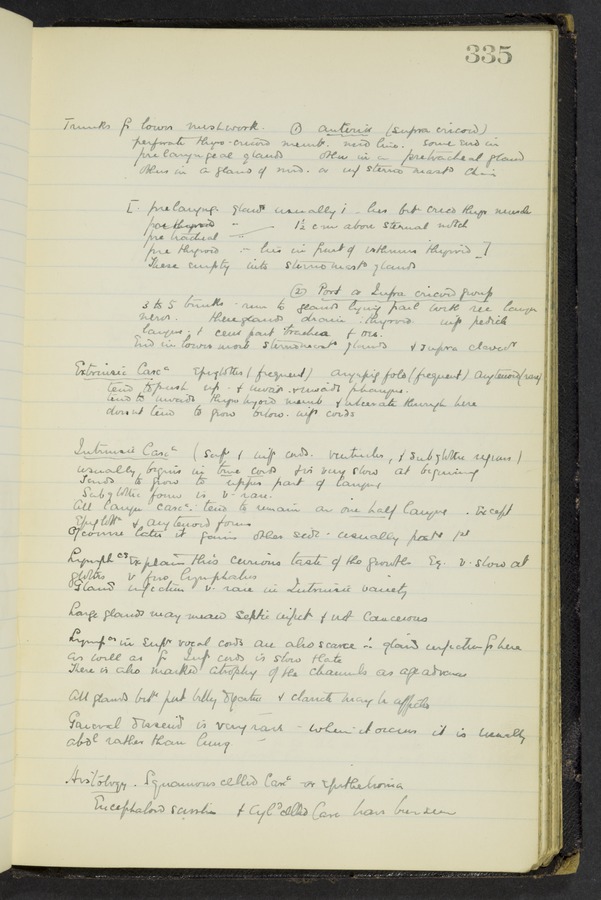 335
Trunks fr lower meshwork. ① anterior (supra cricoid)
perforate thyro-cricoid memb. mid line. some end in
prelaryngeal glands other in a pretracheal gland
others in a gland of mid. or inf sterno mast chain
[. prelaryng. glands usually 1 - lies bet crico thyr muscle
1½ cm above sternal notch
pre tracheal
pre thyroid - lies in front of isthmus thyroid ]
These empty into sternomast glands
② Post or Infra cricoid group
3 to 5 trunks run to glands lying parl with rec laryn
nerve. these glands drain thyroid inf pedicle
larynx & cerv part trachea & oes.
End in lower most sternomast glands & supra clavr
Extrinsic Carca Epiglottis (frequent) aryepig fold (frequent) arytenoid (rare)
tend to push up & invade pharynx.
tend to invade thyrohyoid memb & ulcerate through here
does not tend to grow below inf cords
Intrinsic Carca (sup & inf cords. ventricles, & subglottic regions.)
usually begins in true cords & is very slow at beginning
Tends to grow to upper part of larynx
Subglottic form is v. rare.
All laryn carca: tend to remain on one half larynx. Except
Epiglottic & arytenoid forms
Of course later it gains other side - usually post 1st
Lymphcs explain this curious trait of the growths Eg. v. slow at
glottis v few lymphatics
Gland infection v. rare in Intrinsic variety
Large glands may mean septic infect & not cancerous
Lympcs in supr vocal cords are also scarce ∴ gland infection fr here
as well as fr Inf cords is slow & late
There is also marked atrophy of the channels as age advances
All glands betn post belly digastric & clavicle may be affected
General dissemn is very rare - when it occurs it is usually
abdl rather than lung
Histology. Squamous celled Carca or Epithelioma
Encephaloid & Cylcelled Carc have been seen